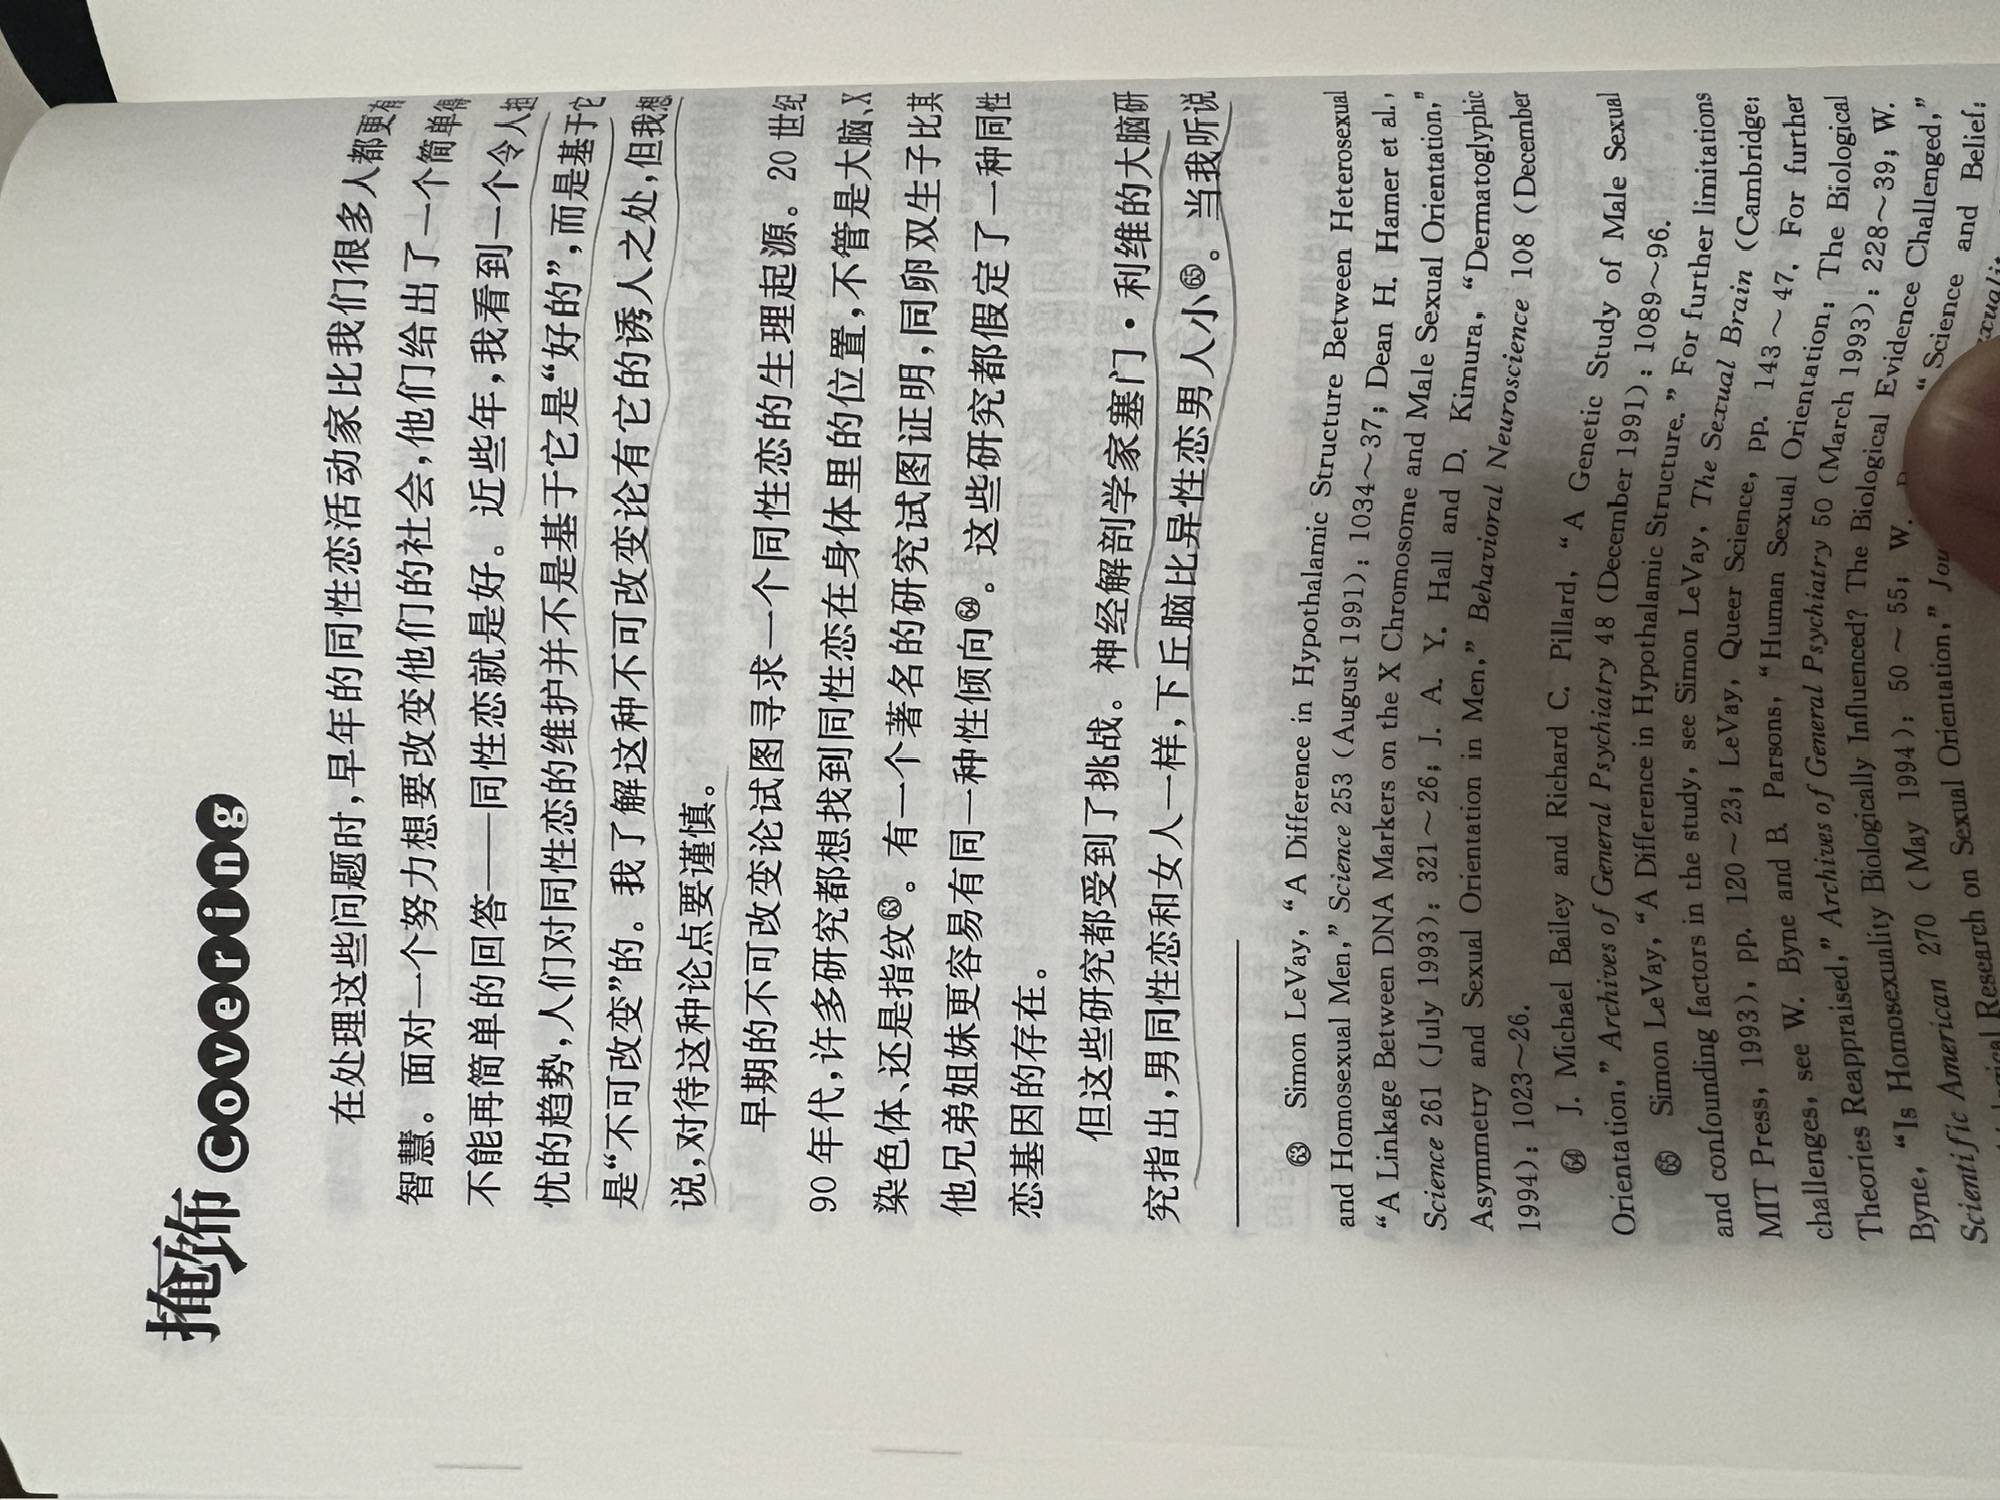 掩饰 Covering
在处理这些问题时,早年的同性恋活动家比我们很多人都更有
智慧。面对一个努力想要改变他们的社会,他们给出了一个简单得
不能再简单的回答——同性恋就是好。近些年,我看到一个令人担
忧的趋势,人们对同性恋的维护并不是基于它是“好的”,而是基于它
是“不可改变”的。我了解这种不可改变论有它的诱人之处,但我想
说,对待这种论点要谨慎。
早期的不可改变论试图寻求一个同性恋的生理起源。20 世纪
90 年代,许多研究都想找到同性恋在身体里的位置,不管是大脑、X
染色体、还是指纹㊿。有一个著名的研究试图证明,同卵双生子比其
他兄弟姐妹更容易有同一种性倾向64。这些研究都假定了一种同性
恋基因的存在。
但这些研究都受到了挑战。神经解剖学家塞门·利维的大脑研
究指出,男同性恋和女人一样,下丘脑比异性恋男人小65。当我听说
63 Simon LeVay, “A Difference in Hypothalamic Structure Between Heterosexual
and Homosexual Men,” Science 253 (August 1991): 1034~37; Dean H. Hamer et al.,
“A Linkage Between DNA Markers on the X Chromosome and Male Sexual Orientation,”
Science 261 (July 1993): 321~26; J. A. Y. Hall and D. Kimura, “Dermatoglyphic
Asymmetry and Sexual Orientation in Men,” Behavioral Neuroscience 108 (December
1994): 1023~26.
64 J. Michael Bailey and Richard C. Pillard, “A Genetic Study of Male Sexual
Orientation,” Archives of General Psychiatry 48 (December 1991): 1089~96.
65 Simon LeVay, “A Difference in Hypothalamic Structure.” For further limitations
and confounding factors in the study, see Simon LeVay, The Sexual Brain (Cambridge:
MIT Press, 1993), pp. 120~23; LeVay, Queer Science, pp. 143~47. For further
challenges, see W. Byne and B. Parsons, “Human Sexual Orientation: The Biological
Theories Reappraised,” Archives of General Psychiatry 50 (March 1993): 228~39; W.
Byne, “Is Homosexuality Biologically Influenced? The Biological Evidence Challenged,”
Scientific American 270 (May 1994): 50~55; W. “Science and Belief:
Research on Sexual Orientation,”